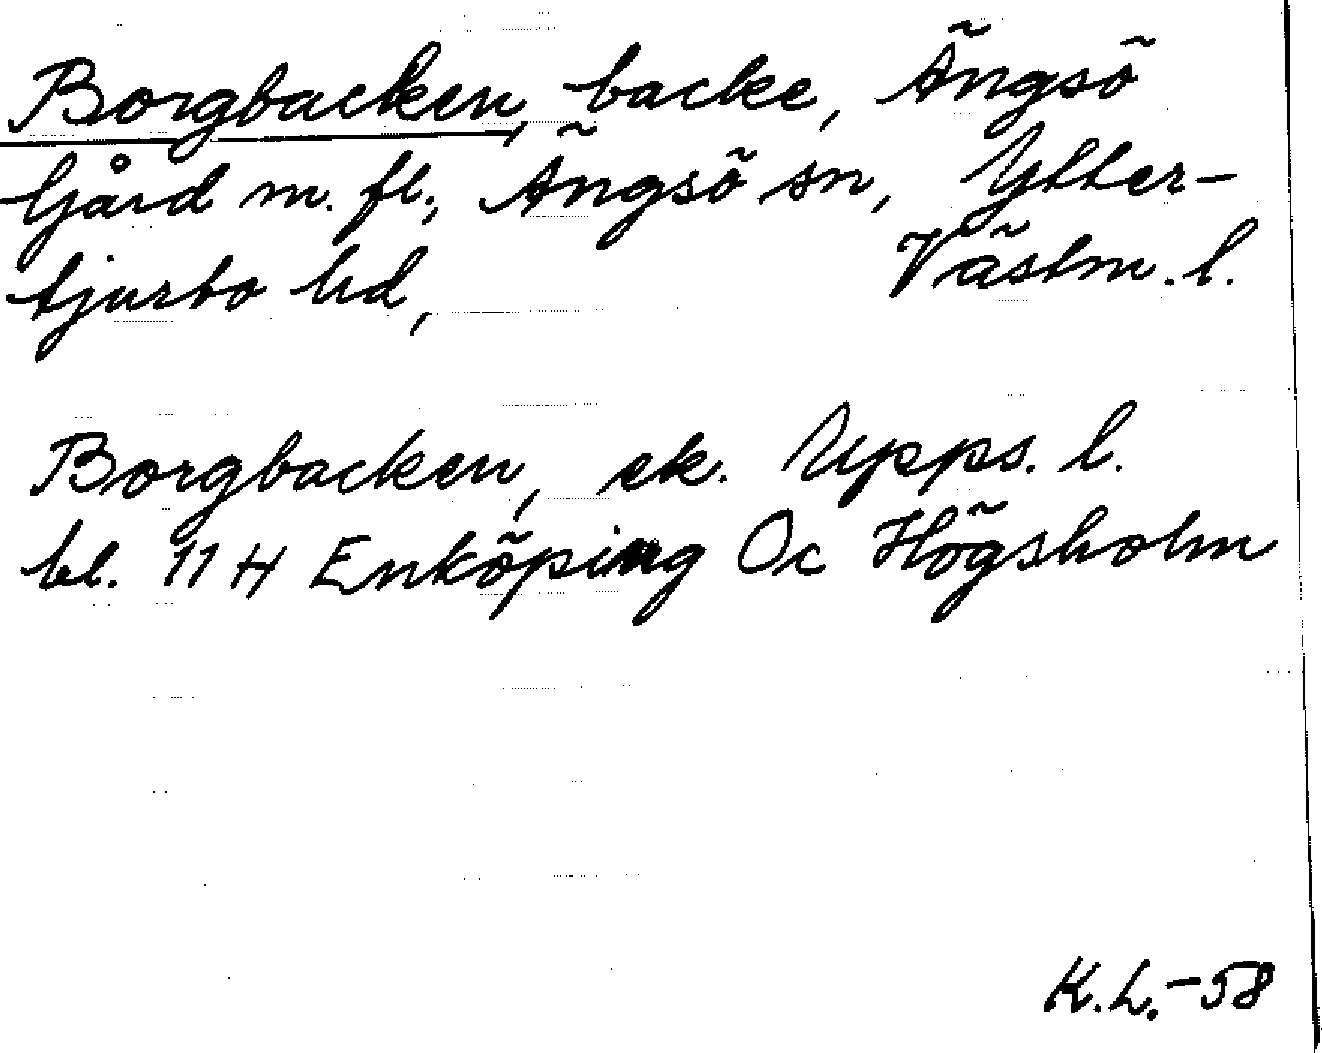 Borgbacken, backe, Ängsö
Gård m. fl., Ängsö sn, Ytter-
tjurbo hd, Västm. l.
Borgbacken, ek. Upps. l.
bl. 11 H Enköping Oc Högsholm
K.L.-58